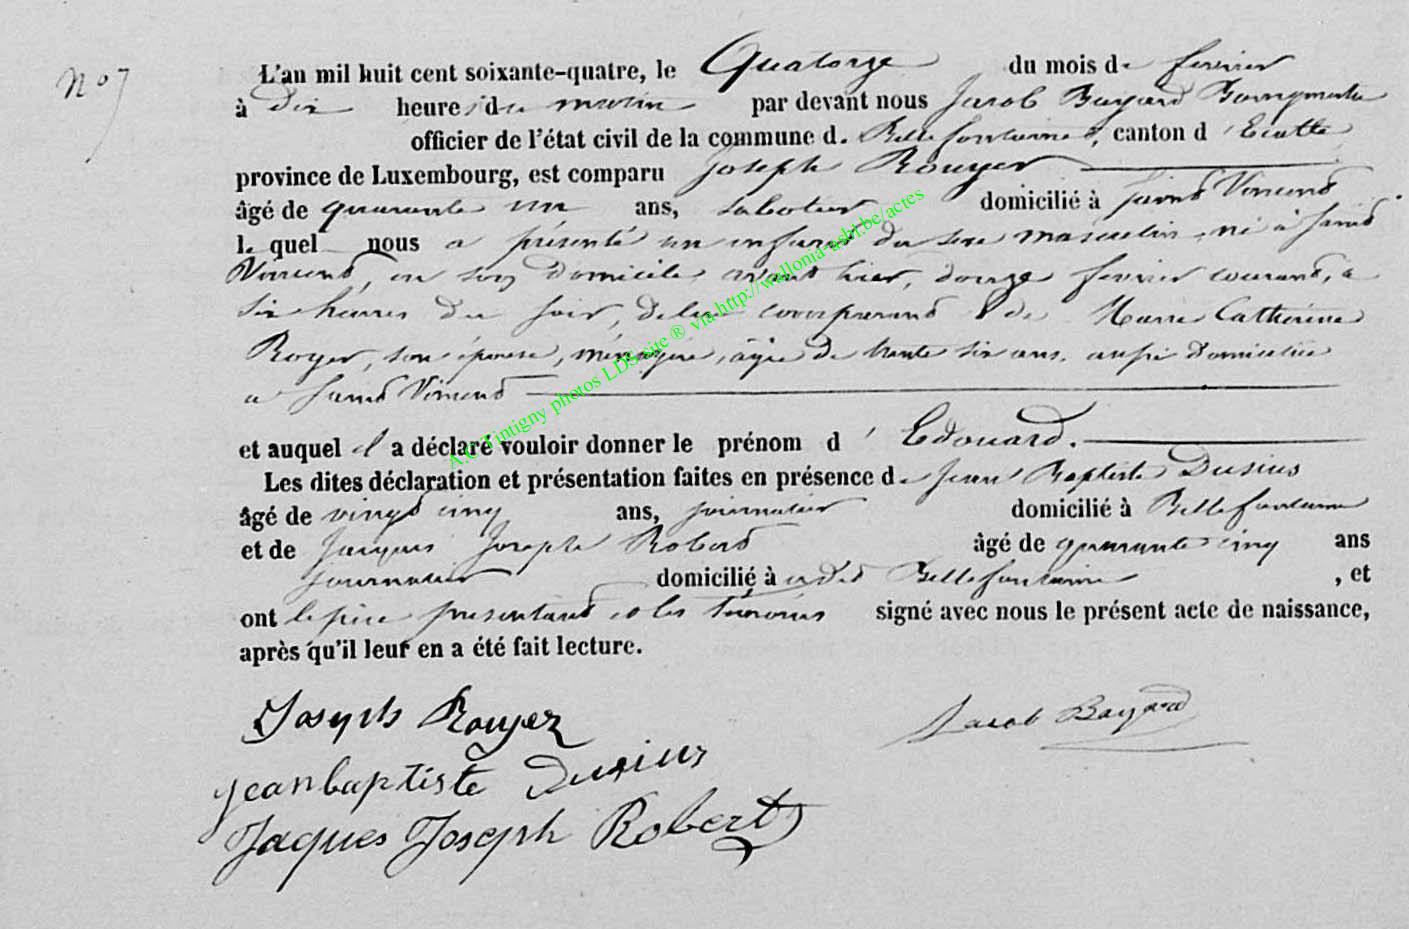 No 7
L'an mil huit cent soixante-quatre, le Quatorze du mois de fevrier
à dix heures du matin par devant nous Jacob Bayard Bourgmestre
officier de l'état civil de la commune d. Bellefontaine, canton d' Etalle
province de Luxembourg, est comparu Joseph Rouyer
âgé de quarante un ans, sabotier domicilié à Saint Vincent
le quel nous a présenté un enfant du sexe masculin, né à Saint
Vincent, en son domicile, avant hier, douze fevrier courant, à
six heures du soir, de lui comparant & de Marie Catherine
Royer, son épouse, ménagère, âgée de trente six ans, aussi domiciliée
à Saint Vincent
et auquel il a déclaré vouloir donner le prénom d' Edouard.
Les dites déclaration et présentation faites en présence de Jean Baptiste Dusius
âgé de vingt cinq ans, journalier domicilié à Bellefontaine
et de Jacques Joseph Robert âgé de quarante cinq ans
journalier domicilié à Bellefontaine, et
ont le père présentant et les témoins signé avec nous le présent acte de naissance,
après qu'il leur en a été fait lecture.
Joseph Rouyer
Jacob Bayard
jeanbaptiste Dusius
Jaques Joseph Robert
A.C Tintigny photos LDS site ® via http://wallonia-asbl.be/actes